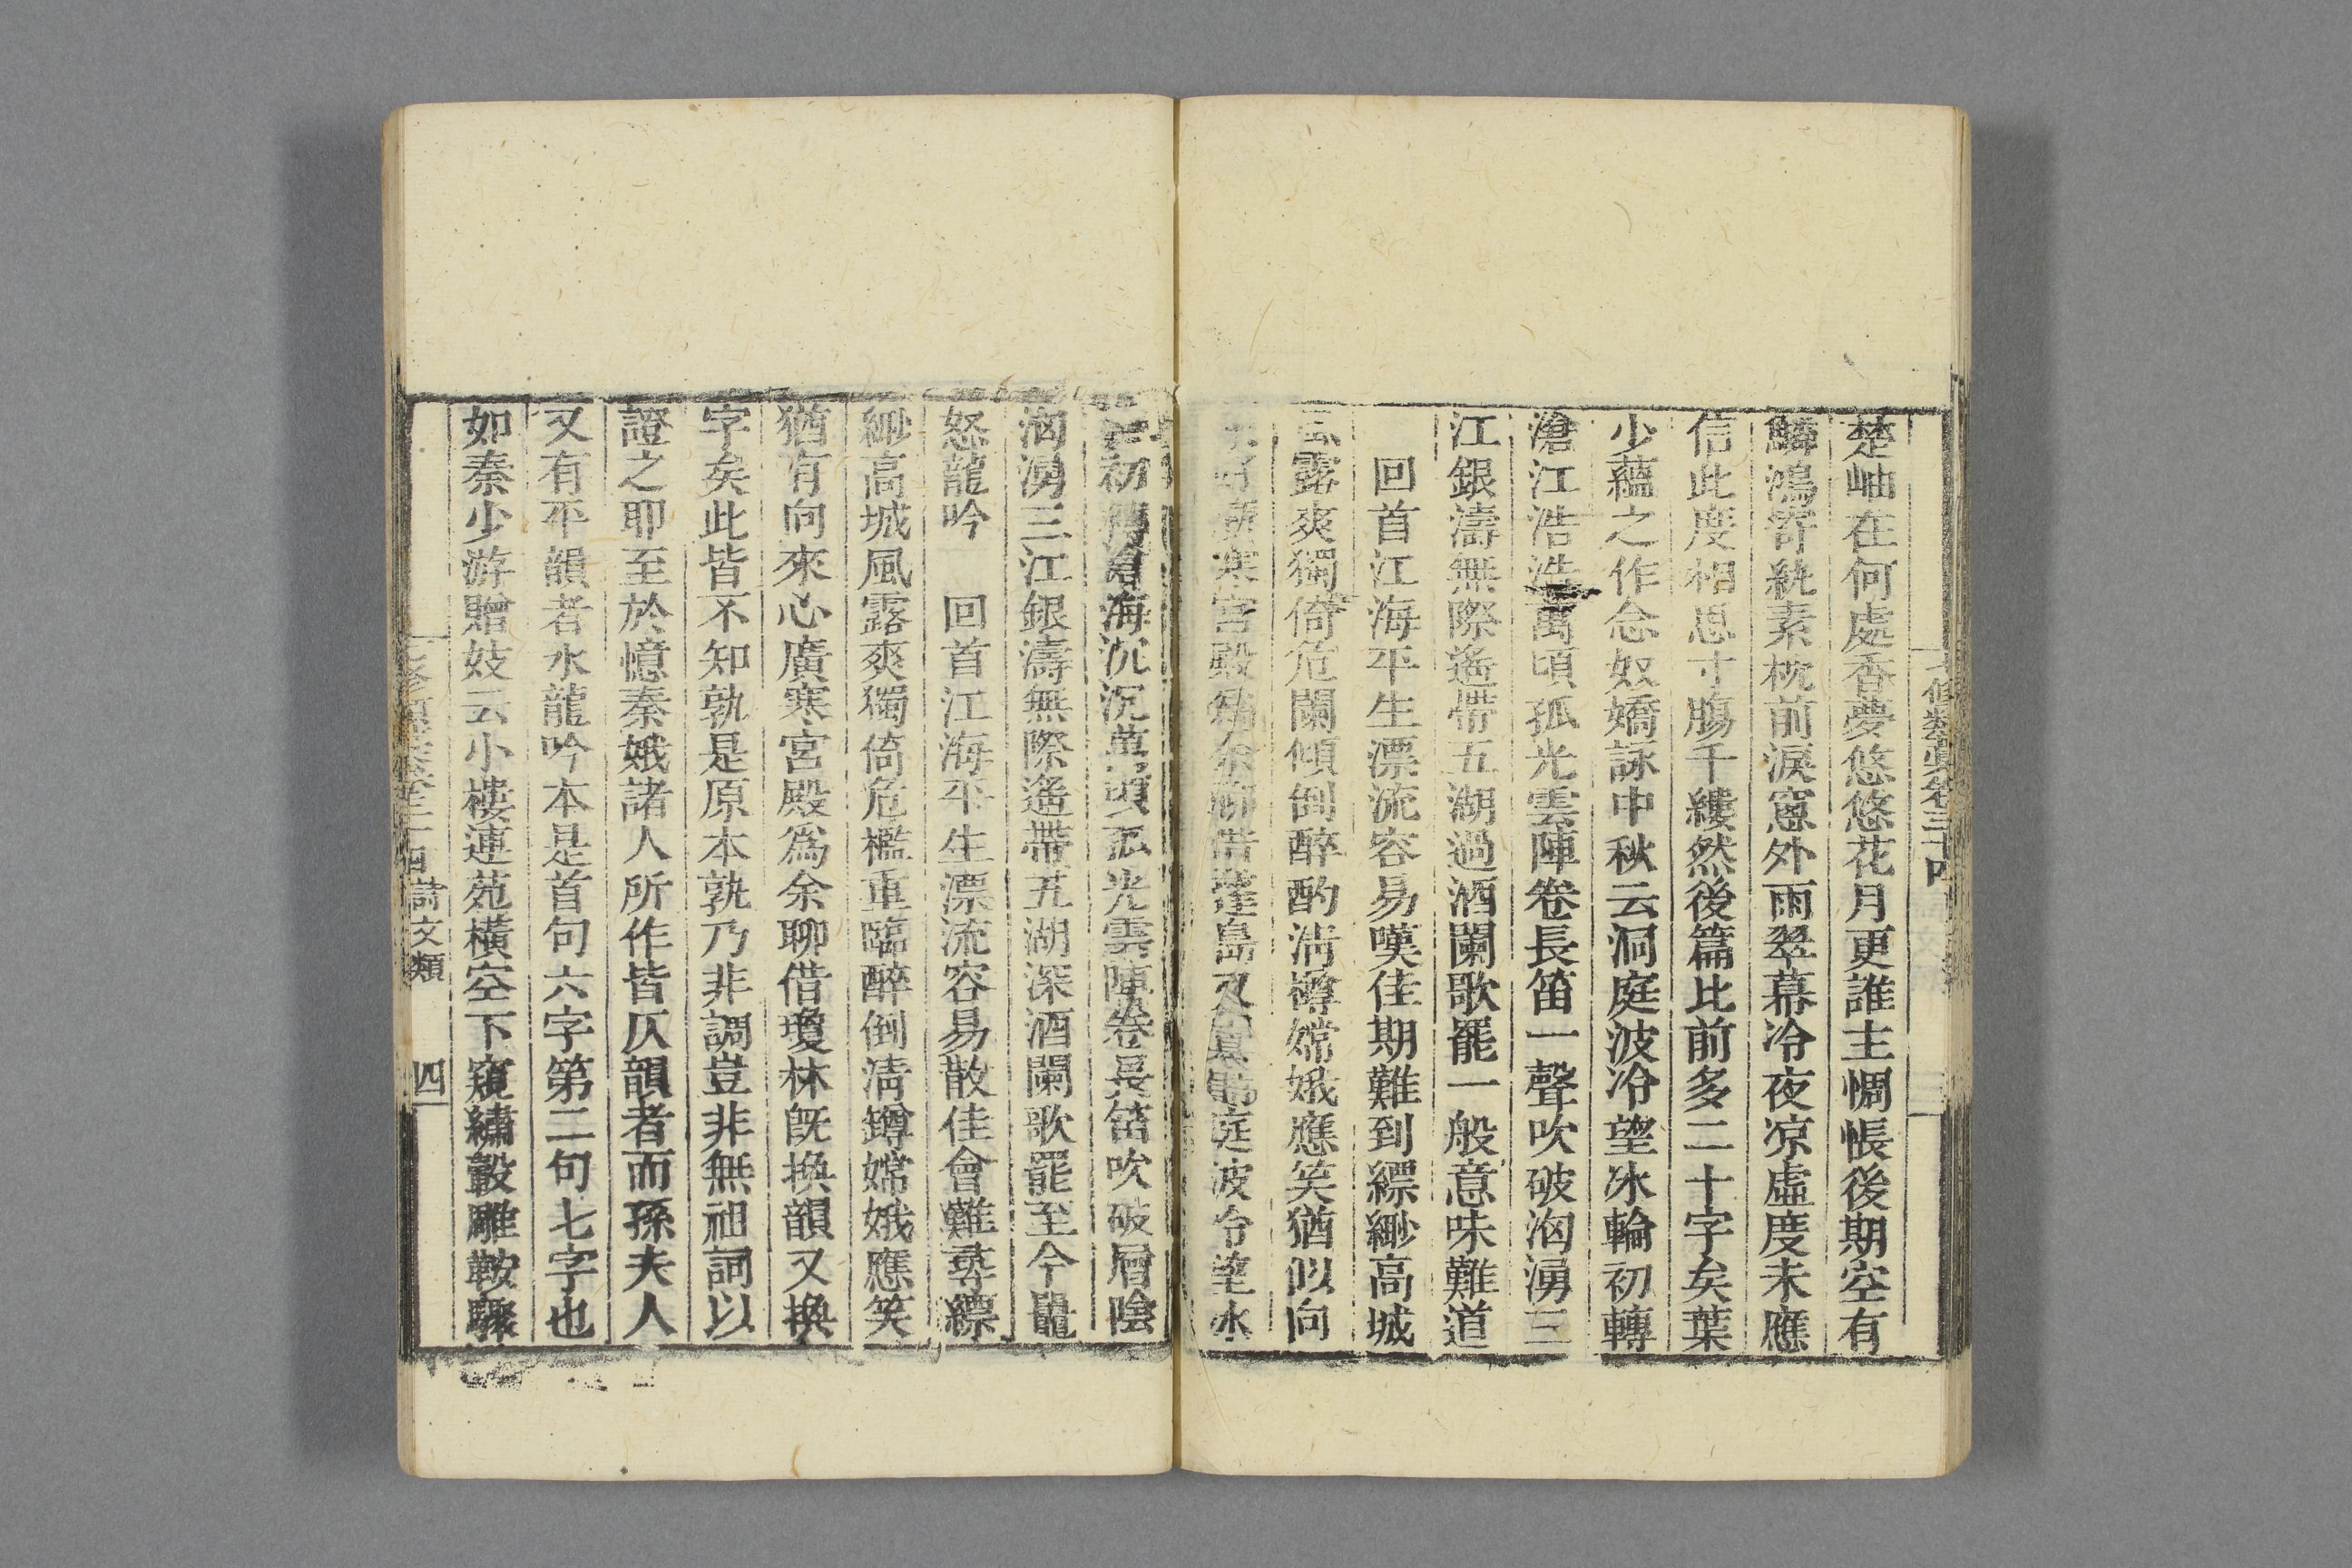 七修類藁卷三十四
楚岫在何處香夢悠悠花月更誰主惆悵後期空有
鱗鴻寄紈素枕前淚窻外雨翠幕冷夜凉虛度未應
信此度相思寸腸千縷然後篇比前多二十字矣葉
少蘊之作念奴嬌詠中秋云洞庭波冷望冰輪初轉
滄江浩浩萬頃孤光雲陣卷長笛一聲吹破洶湧三
江銀濤無際遙帶五湖過酒闌歌罷一般意味難道
回首江海平生漂流容易嘆佳期難到縹緲高城
風露爽獨倚危闌傾倒醉酌淸樽嫦娥應笑猶似向
來好廣寒宮殿爲余聊借蓬島又云洞庭波冷望冰
輪初轉滄海沉沉萬頃孤光雲陣卷長笛吹破層陰
洶湧三江銀濤無際遙帶五湖深酒闌歌罷至今鼉
怒龍吟　回首江海平生漂流容易散佳會難尋縹
緲高城風露爽獨倚危檻重臨醉倒淸罇嫦娥應笑
猶有向來心廣寒宮殿爲余聊借瓊林旣換韻又換
字矣此皆不知孰是原本孰乃非調豈非無祖詞以
證之耶至於憶秦娥諸人所作皆仄韻者而孫夫人
又有平韻者水龍吟本是首句六字第二句七字也
如秦少游贈妓云小樓連苑橫空下窺繡轂雕鞍驟
七修類藁卷三十四 詩文類 四